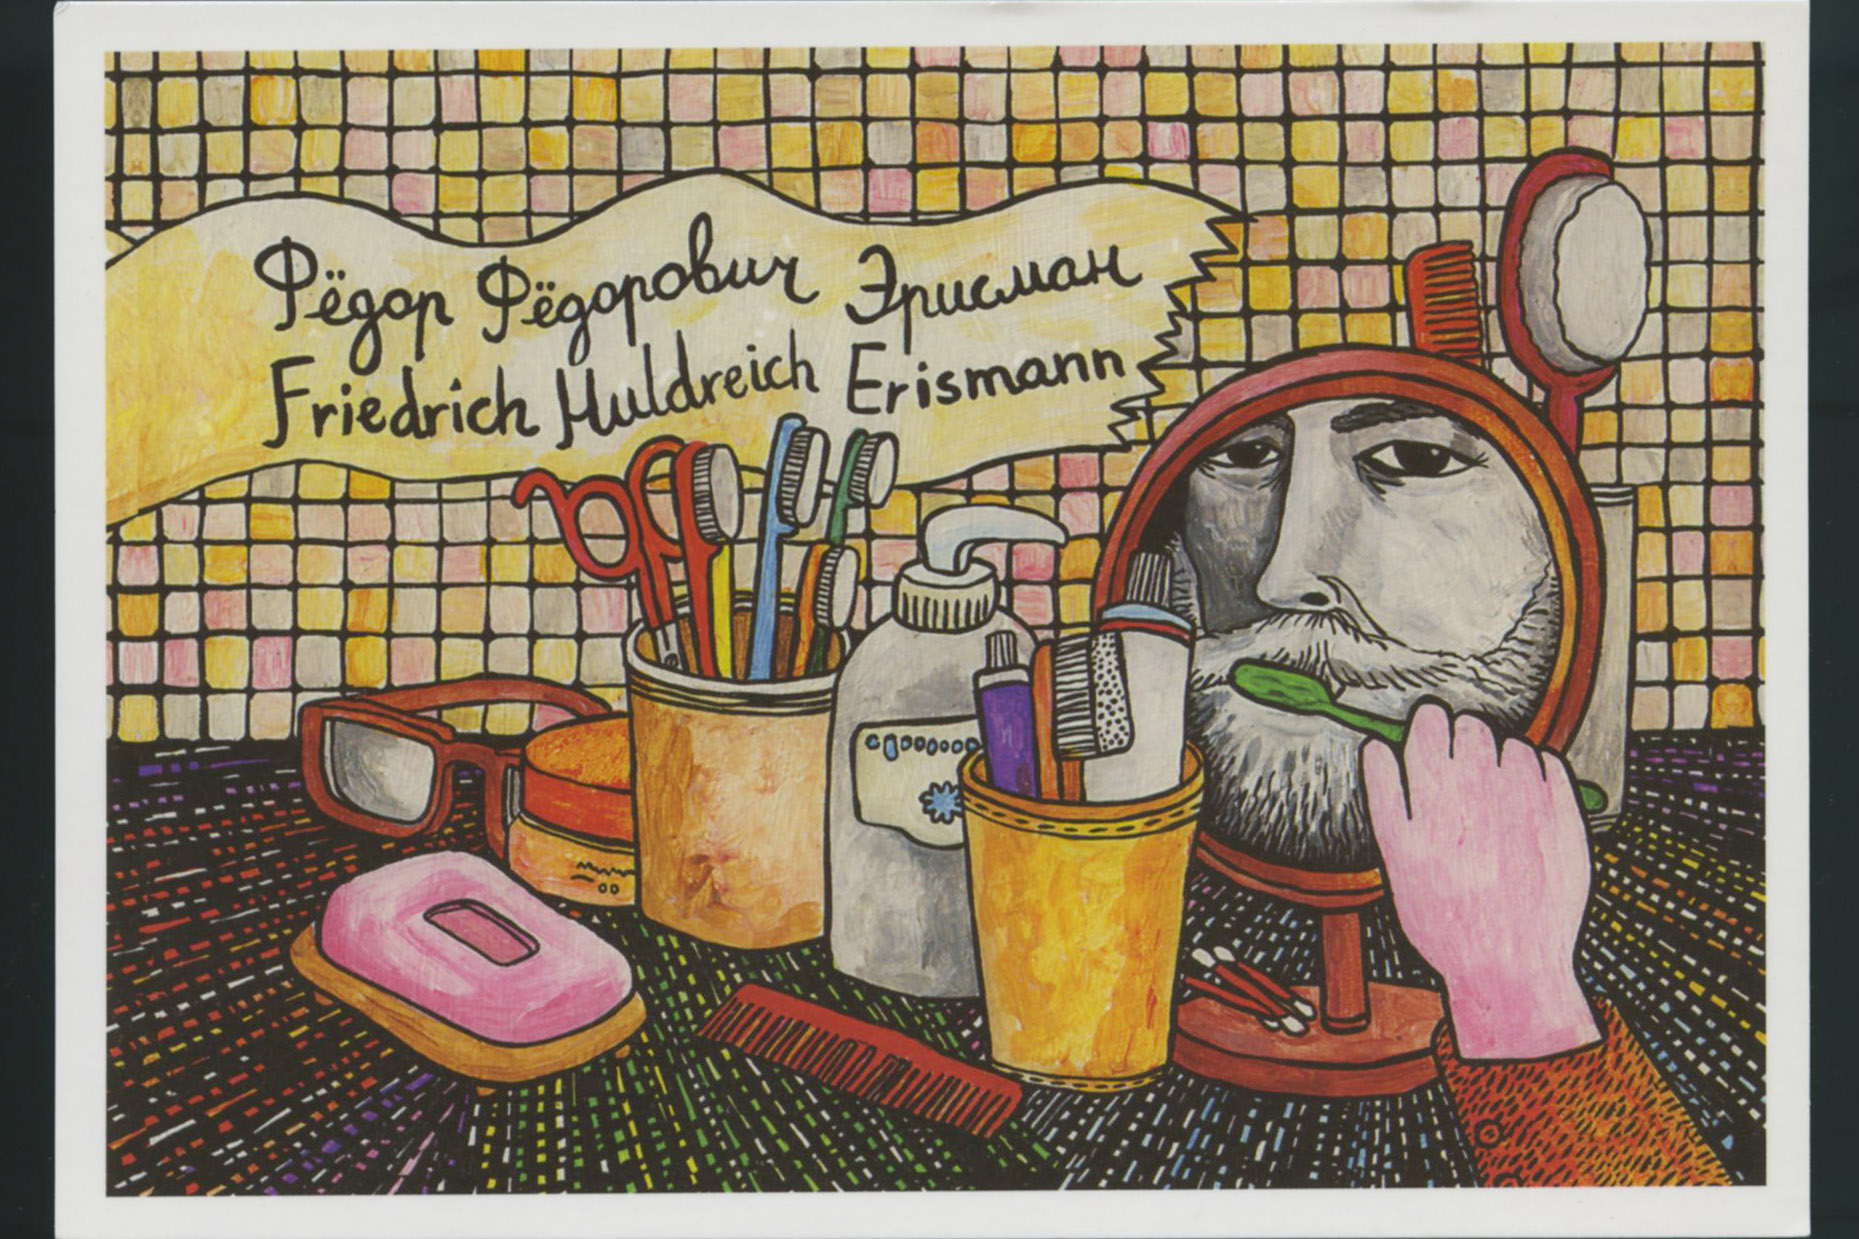 Фёдор Фёдорович Эрисман
Friedrich Huldreich Erismann